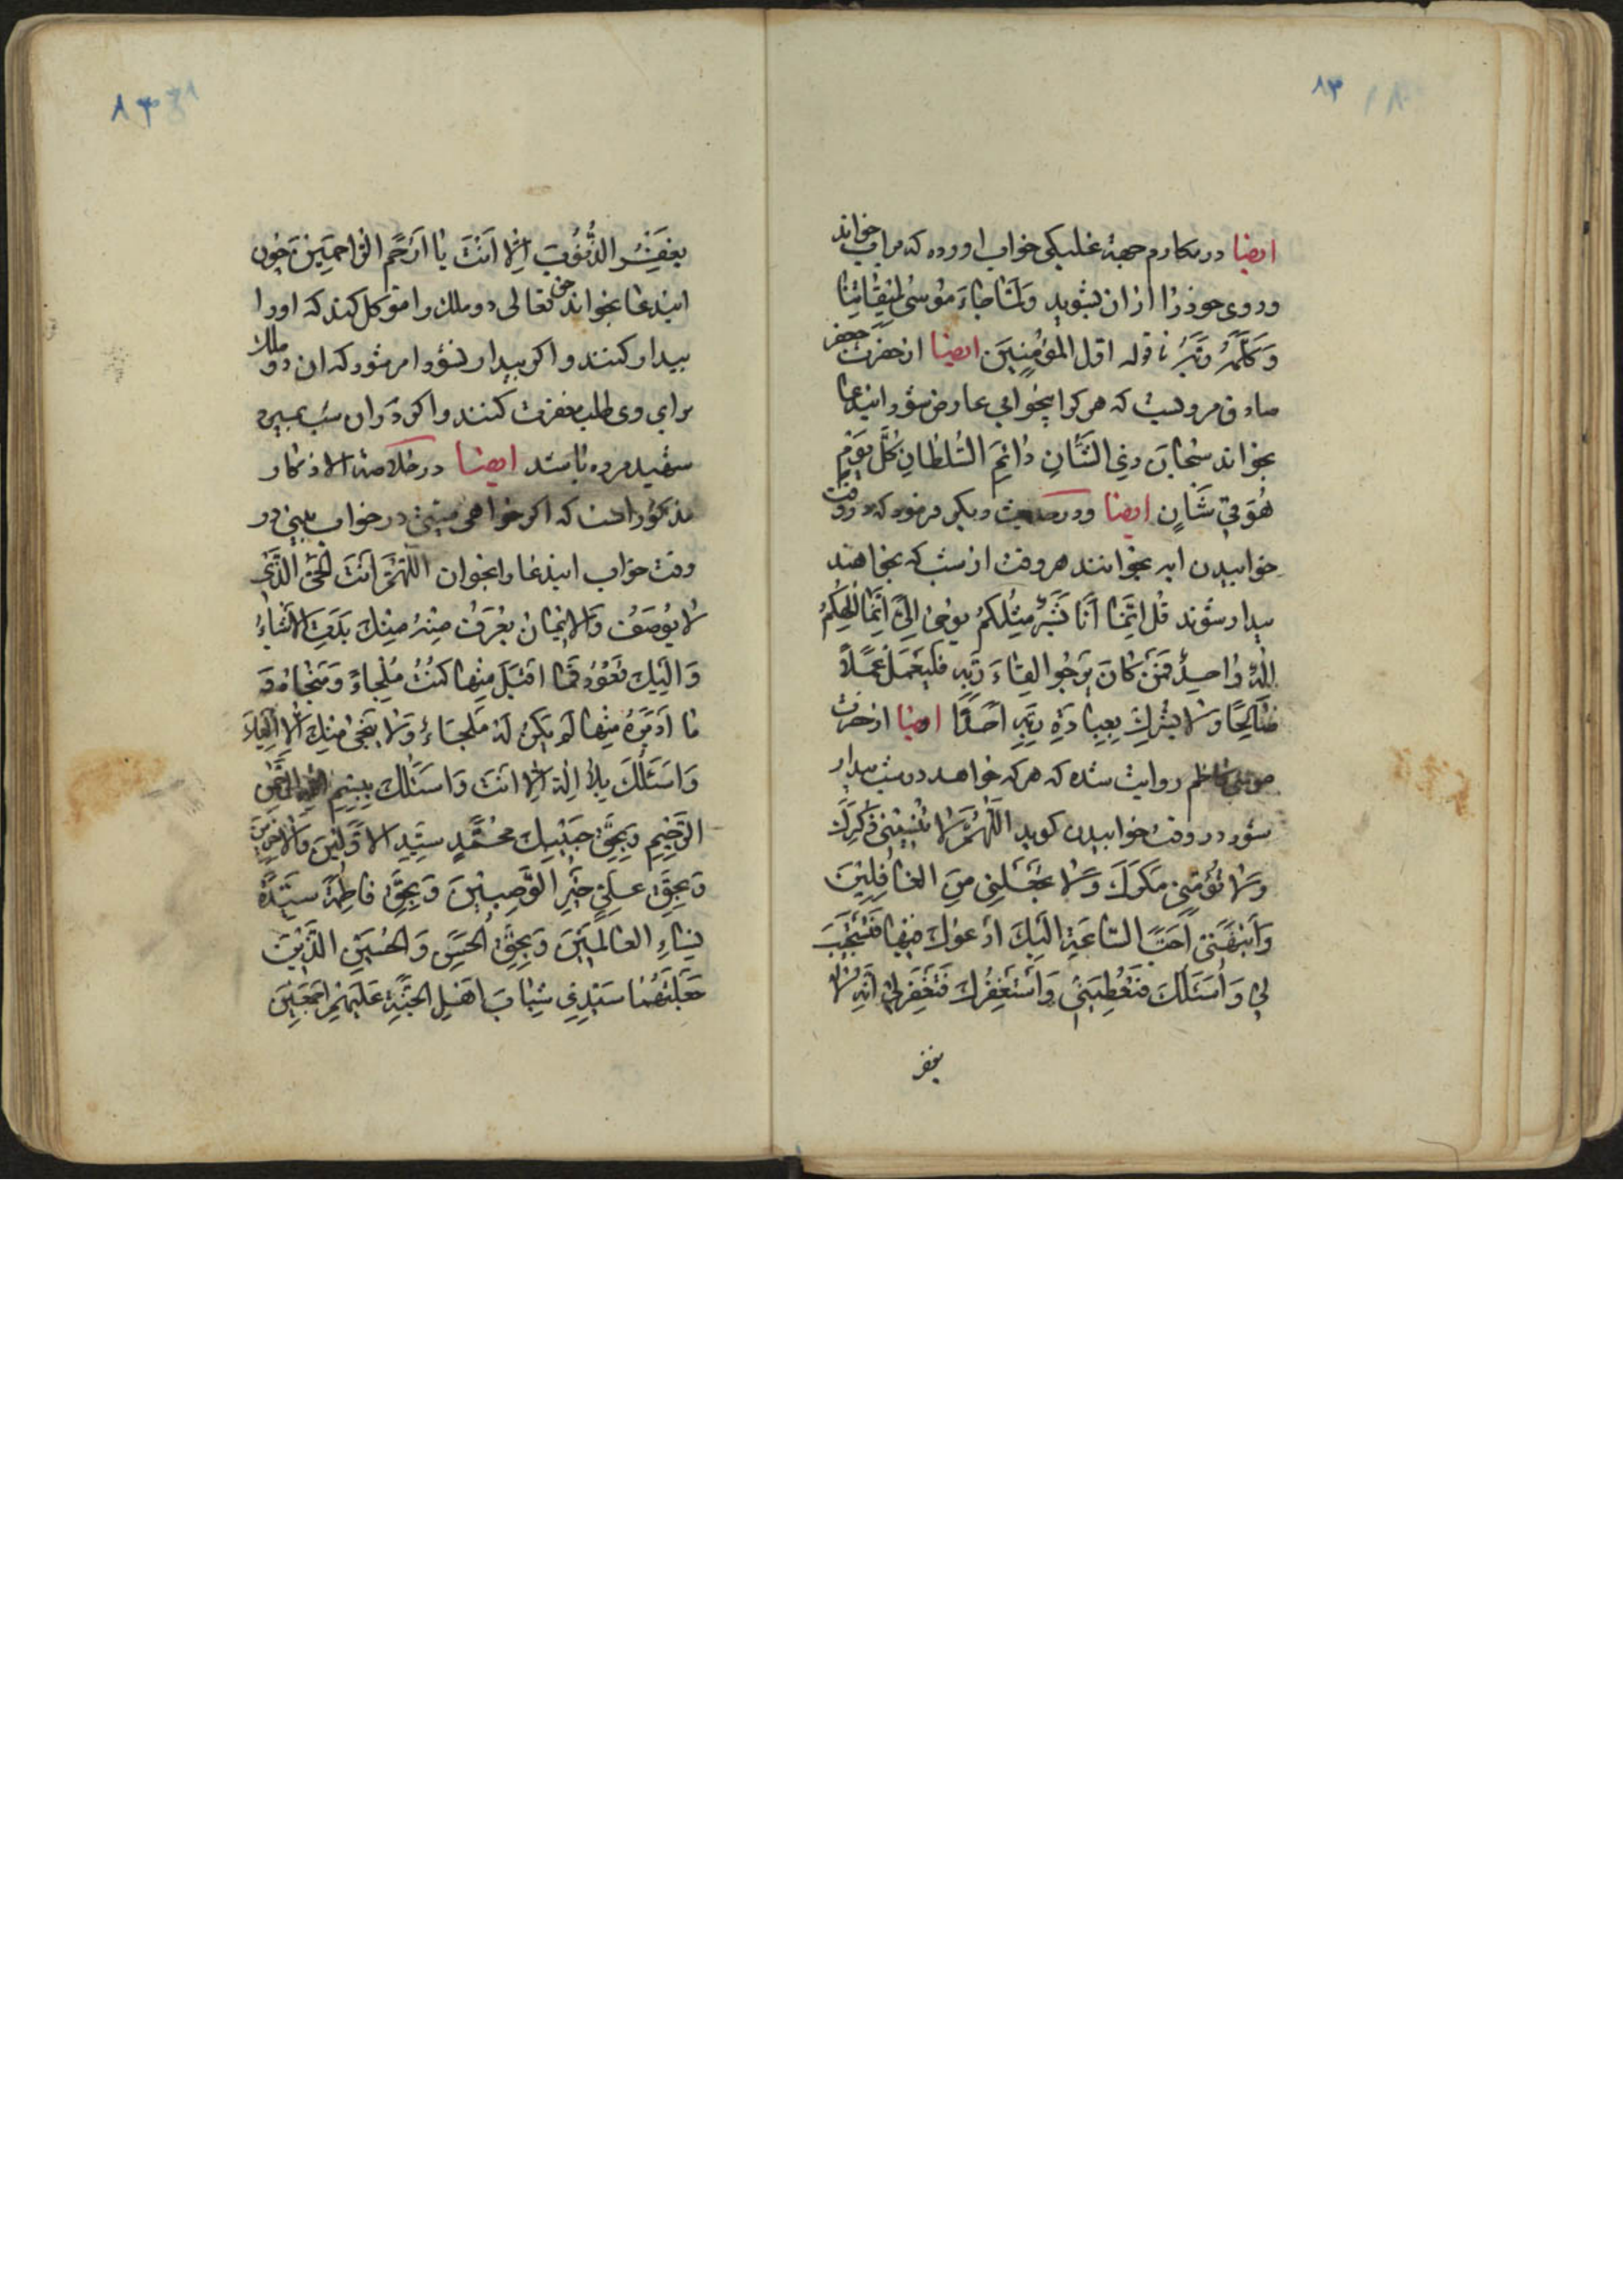 ۸۳
ایضا در مکارم جهة غلبکی خواب اورده که بر اب خواند
و روی خود را ازان بشوید وَلَمّا جاءَ مُوسی لِمیقاتِنا
وَکَلَّمَهُ رَبُّهُ تا قوله اول المؤمِنینَ ایضا از حضرت جعفر
صادق مرویست که هر کرا بیخوابی عارض شود ایندعا
بخواند سُبحانَ ذِی الشّانِ دائِمِ السُّلطانِ کُلَّ یَومٍ
هُوَ فی شَانٍ ایضا و در حدیث دیکر فرموده که در وقت
خوابیدن ایه بخوانند هر وقت از شب که بخواهند
بیدار شوند قُل اِنَّما اَنَا بَشَرٌ مِثلُکُم یُوحی اِلَیَّ اَنَّما اِلهُکُم
اِلهٌ واحِدٌ فَمَن کانَ یَرجُوا لِقاءَ رَبِّهِ فَلیَعمَل عَمَلاً
صالِحًا وَلا یُشرِک بِعِبادَةِ رَبِّهِ اَحَدًا ایضا از حضرت
موسی کاظم روایت شده که هر که خواهد در شب بیدار
شود در وقت خوابیدن کوید اَللّهُمَّ لا تُنسِنی ذِکرَكَ
وَلا تُؤمِنّی مَکرَكَ وَلا تَجعَلنِی مِنَ الغافِلینَ
وَاَنبِهنی اَحَبَّ السّاعَةِ اِلَیكَ اَدعوُكَ فیها فَتَستَجیبَ
لی وَ اَسئَلُكَ فَتُعطِیَنی وَاَستَغفِرُكَ فَتَغفِرَ لی اِنَّهُ لا
یغفر
۸۳
یَغفِرُ الذُّنُوبَ اِلّا اَنتَ یا اَرحَمَ الرّاحِمینَ چون
ایندعا بخواند حق تعالی دو ملك را موکل کند که او را
بیدار کنند و اکر بیدار نشود امر شود که ان دو ملك
برای وی طلب مغفرت کنند و اکر در ان شب بمیرد
شهید مرده باشد ایضا در خلاصة الاذکار
مذکور است که اکر خواهی میتی در خواب ببینی در
وقت خواب ایندعا را بخوان اَللّهُمَّ اَنتَ الحَیُّ الَّذی
لا یُوصَفُ وَالایمانُ یُعرَفُ مِنهُ مِنكَ بَدَتِ الاَشیاءُ
وَ اِلَیكَ تَعُودُ فَما اَقبَلَ مِنها کُنتَ مَلجَاءَهُ وَ مَنجاهُ وَ
ما اَدبَرَ مِنها لَم یَکُن لَهُ مَلجَاءٌ وَلا مَنجی مِنكَ اِلّا اِلَیكَ
وَ اَسئَلُكَ بِلا اِلهَ اِلّا اَنتَ وَ اَسئَلُكَ بِبِسمِ اللهِ الرَّحمنِ
الرَّحیمِ وَ بِحَقِّ حَبیبِكَ مُحَمَّدٍ سَیِّدِ الاَوَّلینَ وَالاخِرینَ
وَ بِحَقِّ عَلِیٍّ خَیرِ الوَصِیّینَ وَ بِحَقِّ فاطِمَةَ سَیِّدَةِ
نِساءِ العالَمینَ وَ بِحَقِّ الحَسَنِ وَ الحُسَینِ الَّذَینِ
جَعَلتَهُما سَیِّدِی شَبابِ اَهلِ الجَنَّةِ عَلَیهِم اَجمَعینَ